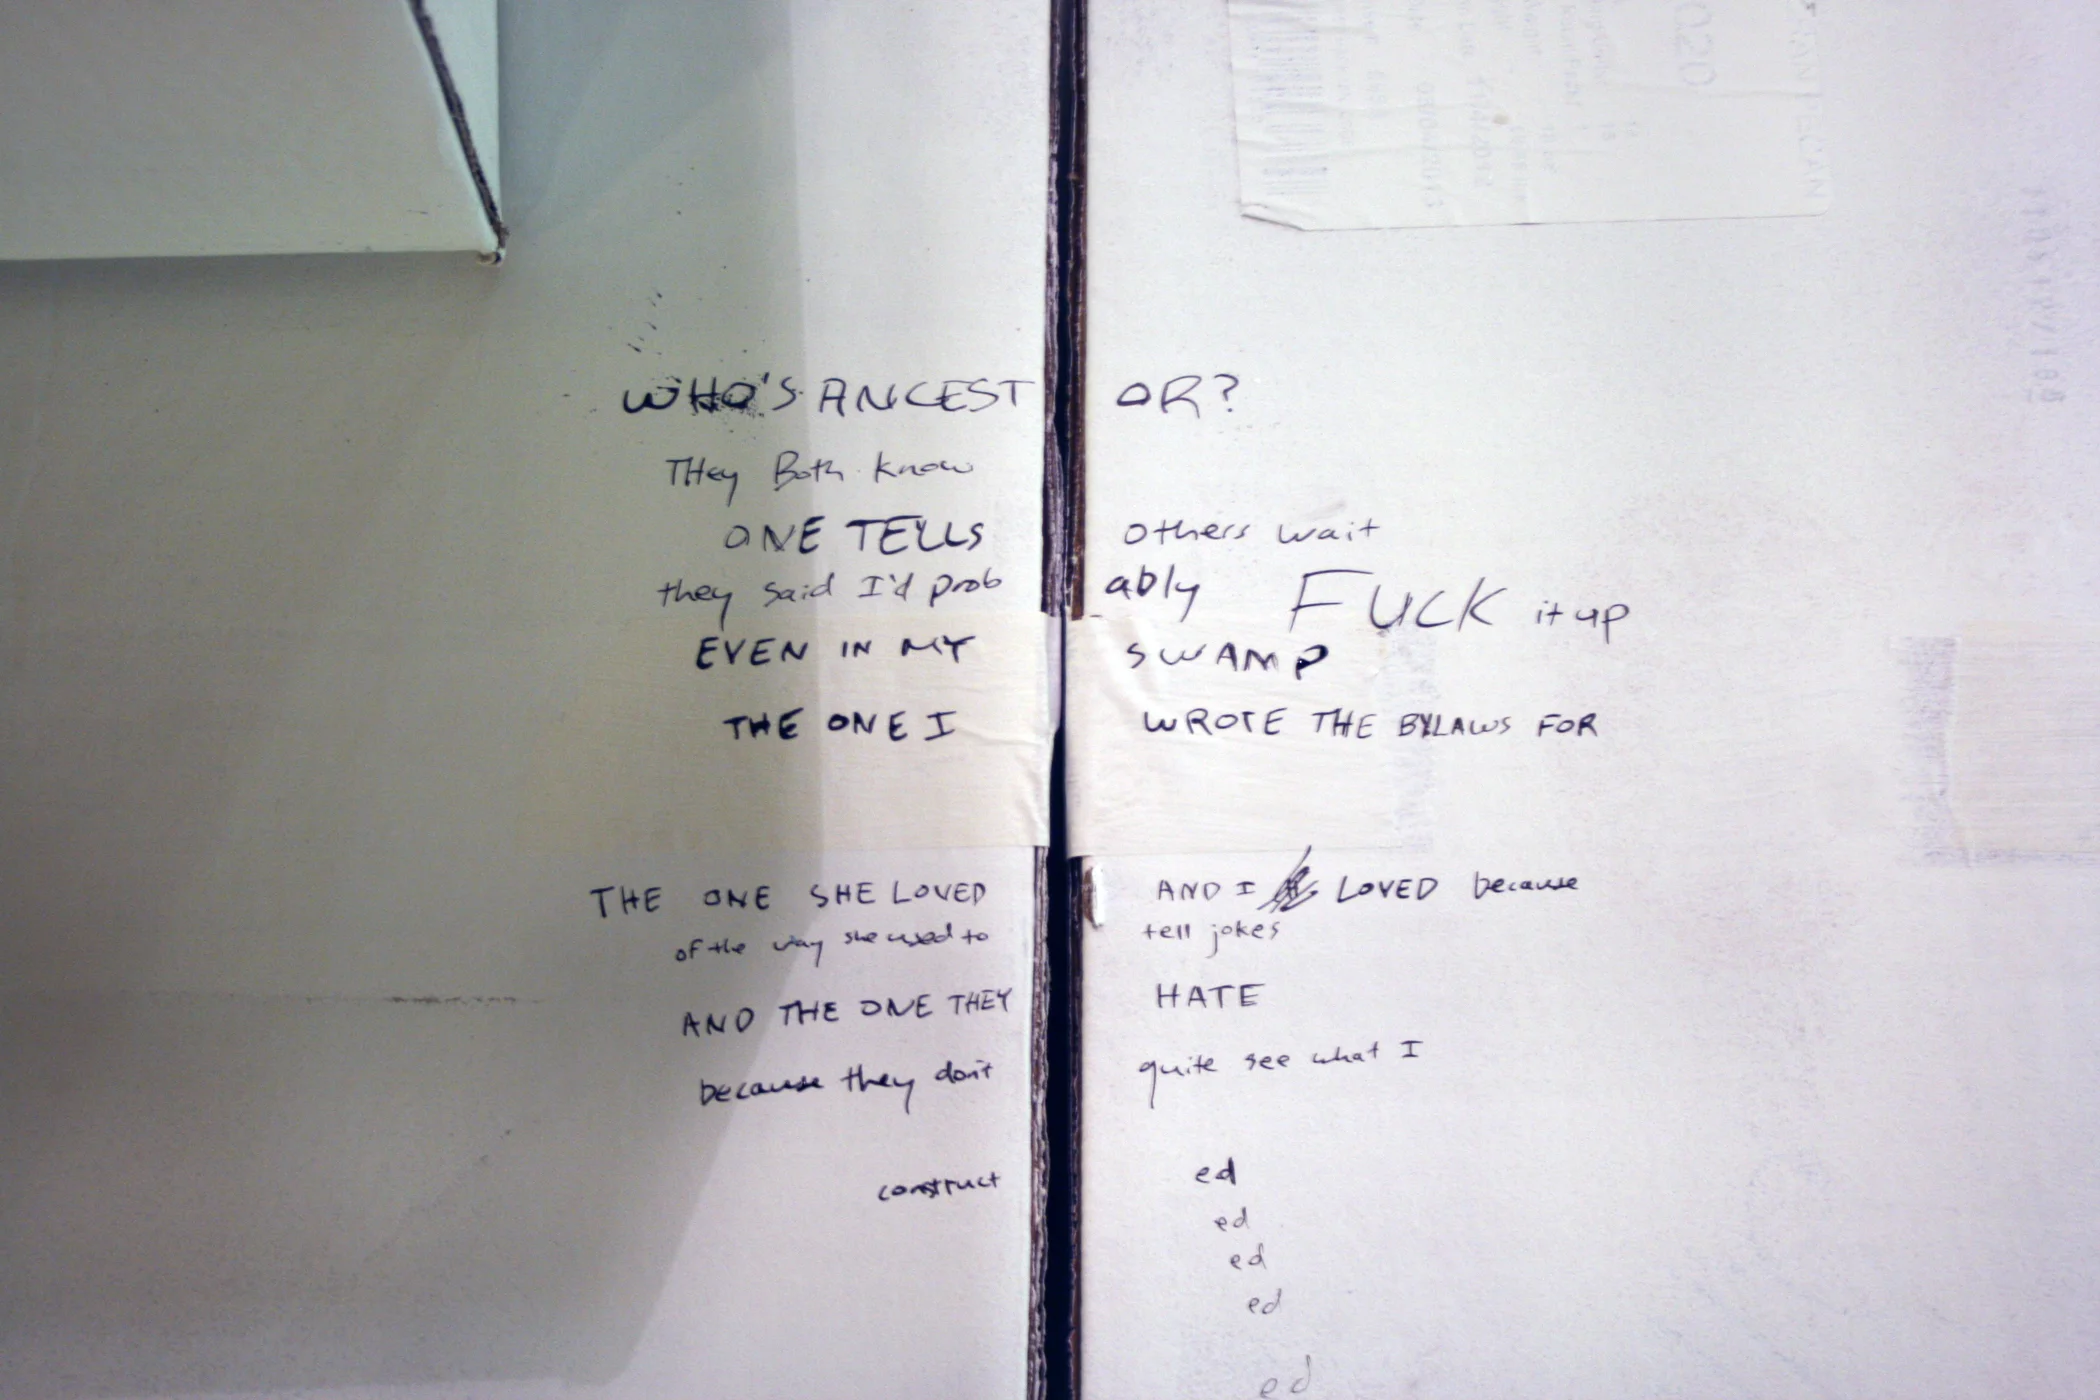 WHO'S ANCEST OR?
THey Both know
ONE TELLS others wait
they said I'd prob ably FUCK it up
EVEN IN MY SWAMP
THE ONE I WROTE THE BYLAWS FOR
THE ONE SHE LOVED AND I LOVED because
of the way she used to tell jokes
AND THE ONE THEY HATE
because they don't quite see what I
construct ed
ed
ed
ed
ed